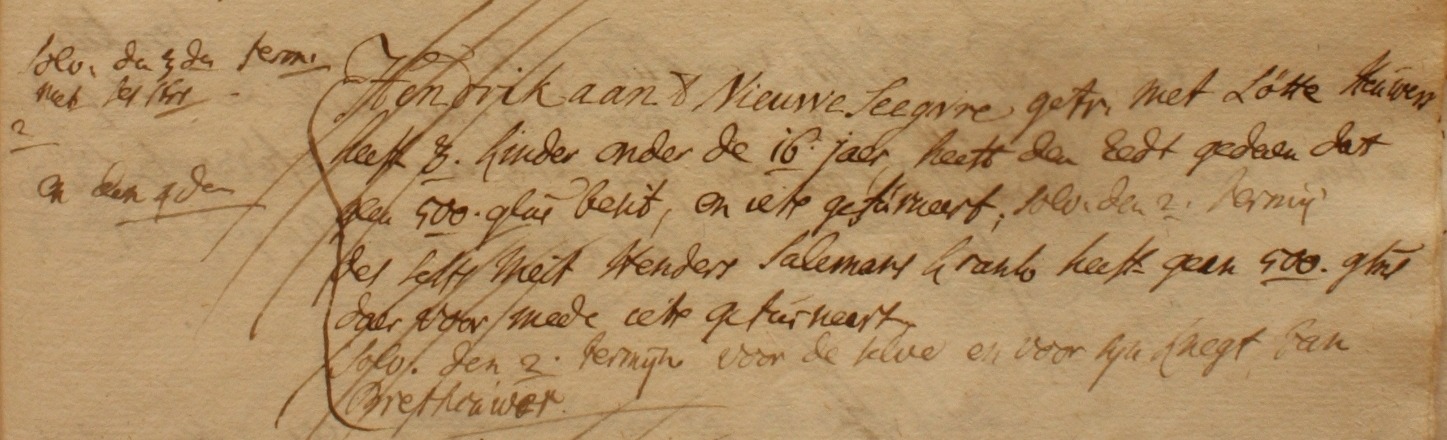 solv. den 3den term.
met ses str.
2
en den 4den
Hendrik aan d Nieuwe Seegvre getr. met Lötte Heüwers
heeft 3. kinder onder de 16. jaer, heeft den Eedt gedaen dat
geen 500. glns besit, en iets gefürneert, solv. den 2. termijn
des selfs Meit Henders Salemans heeft geen 500. glns
daer voor mede iets gefürneert
solv. den 2. termijn voor de selve en voor syn knegt van